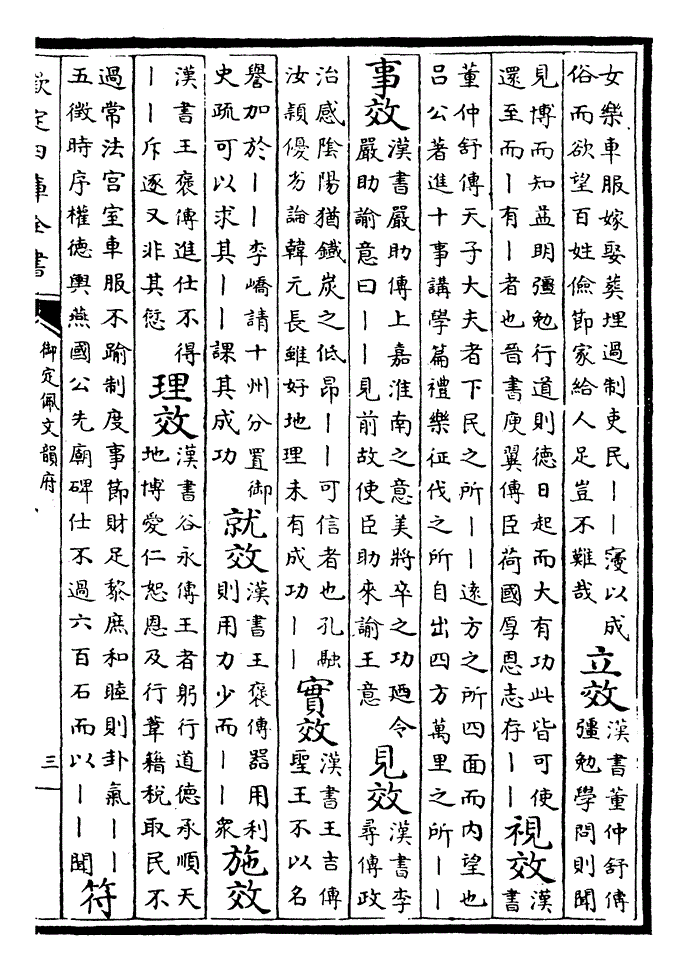 女樂車服嫁娶葬埋過制吏民丨丨寖以成
俗而欲望百姓儉節家給人足豈不難哉
立效
漢書董仲舒傳
彊勉學問則聞
見博而知益明彊勉行道則德日起而大有功此皆可使
還至而丨有丨者也晉書庾翼傳臣荷國厚恩志存丨丨
視效
漢
書
董仲舒傳天子大夫者下民之所丨丨遠方之所四面而内望也
吕公著進十事講學篇禮樂征伐之所自出四方萬里之所丨丨
事效
漢書嚴助傳上嘉淮南之意美將卒之功廼令
嚴助諭意曰丨丨見前故使臣助來諭王意
見效
漢書李
尋傳政
治感陰陽猶鐵炭之低昂丨丨可信者也孔融
汝潁優劣論韓元長雖好地理未有成功丨丨
實效
漢書王吉傳
聖王不以名
譽加於丨丨李嶠請十州分置御
史疏可以求其丨丨課其成功
就效
漢書王褒傳器用利
則用力少而丨丨衆
施效
漢書王褒傳進仕不得
丨丨斥逐又非其愆
理效
漢書谷永傳王者躬行道德承順天
地博愛仁恕恩及行葦籍稅取民不
過常法宫室車服不踰制度事節財足黎庶和睦則卦氣丨丨
五徵時序權德輿燕國公先廟碑仕不過六百石而以丨丨聞
符
欽定四庫全書
御定佩文韻府
三